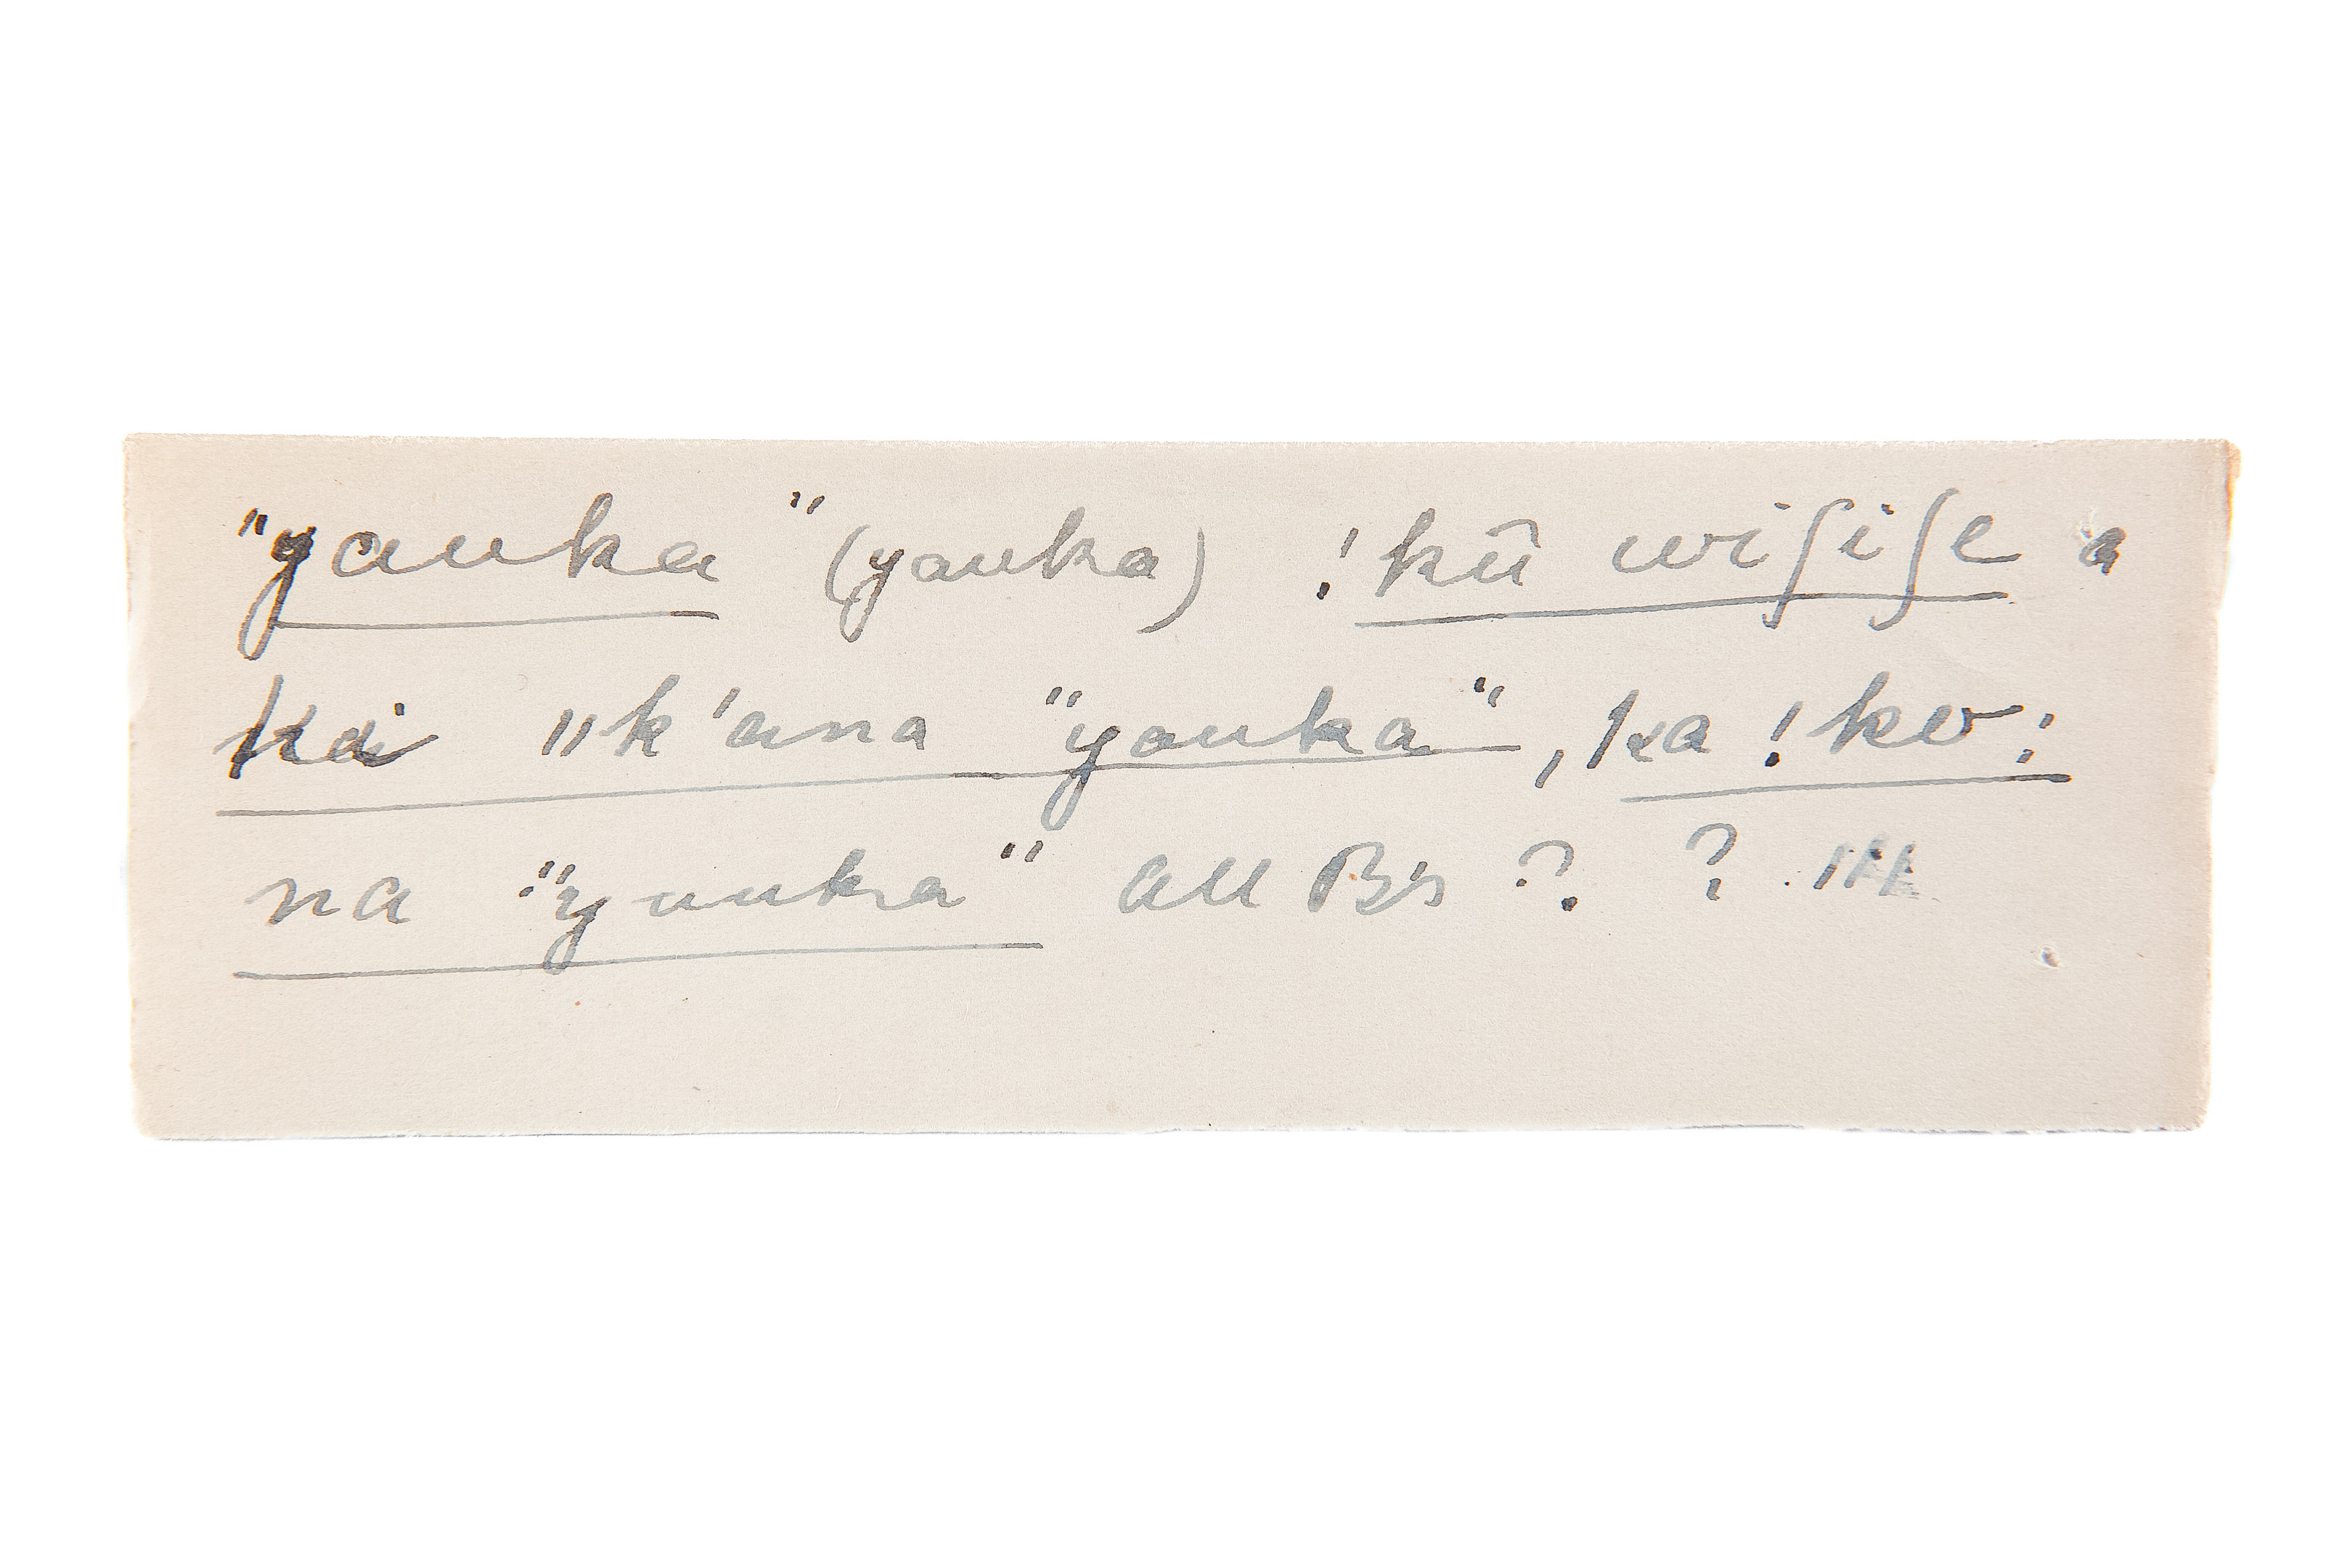 "yauka" (yauka) !kũ wiʃiʃe a
kai "k'ana "yauka", ka !ko:
na "yauka" all B's ? ?